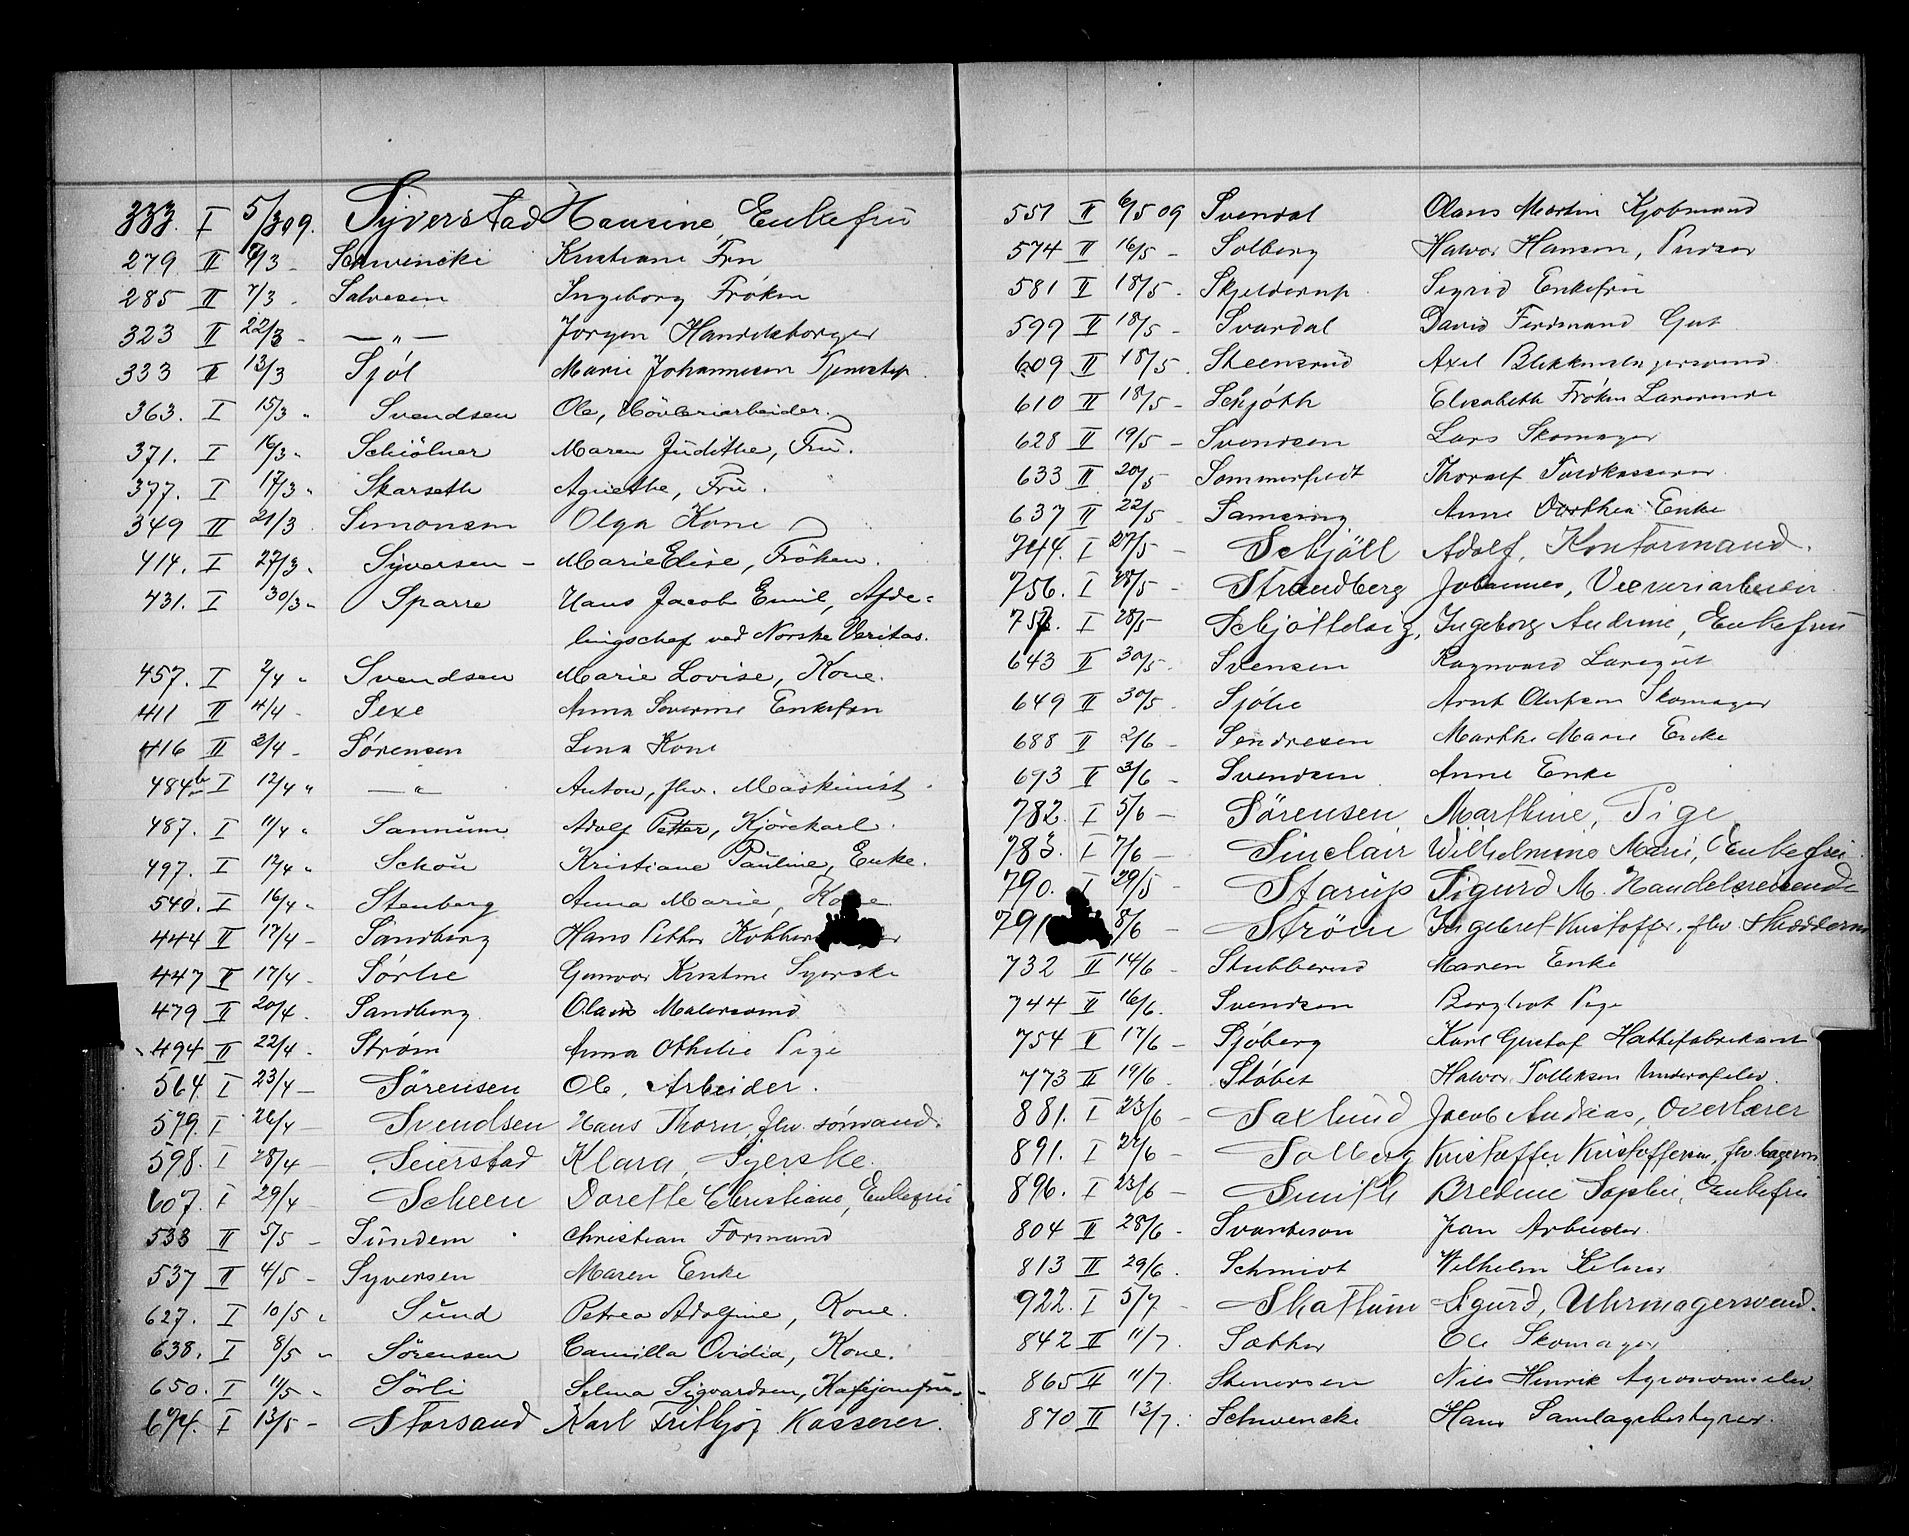 333. I 5/3 09. Syverstad Hansine, Enkefru
279 II 6/3 - Schwencke Kristiane Fru
285 II 7/3 - Salvesen Ingeborg Frøken
323 II 22/3 - —„— Jørgen Handelsborger
333 II 13/3 Sjøl Marie Johannesen Tjenestep.
363. I 15/3 „ Svendsen Ole, Høvleriarbeider.
371. I 16/3 „ Schiölner Maren Judithe, Fru.
377. I 17/3 „ Skarseth Agnethe, Fru.
349 II 21/3 Simonsen Olga Kone
414. I 27/3 „ Syversen - Marie Elise, Fröken.
431. I 30/3 „ Sparre Hans Jacob Emil, Afde-
lingschef ved Norske Veritas.
457. I 2/4 „ Svendsen Marie Lovise, Kone.
411 II 4/4 - Sexe Anna Severine Enkefru
416 II 3/4 - Sørensen Lena Kone
484b I 12/4 „ —„ Anton, fhv. Maskinist.
487. I 11/4 „ Sannum Adolf Petter, Kjörekarl.
497. I 12/4 „ Schou Kristiane Pauline, Enke.
540. I 16/4 „ Stenberg Anna Marie, Kone
444 II 17/4 - Sandberg Hans Petter
447 II 17/4 - Sørlie Gunvor Kristine Syerske
479 II 20/4 - Sandberg Olaus Malersvend
494 II 22/4 - Strøm Anna Othilie Pige
564. I 23/4 - Sörensen Ole, Arbeider.
579. I 26/4 - Svendsen Hans Thorn fhv. sømand.
598. I 28/4 - Seierstad Klara, Syerske.
607. I 29/4 - Scheen Dorette Christiane, Enkefru
533 II 5/5 - Sundem Christian Formand
537 II 4/5 - Syversen Maren Enke
627. I 10/5 „ Sund Petrea Adolfine, Kone.
638. I 8/5 „ Sörensen Camilla Ovidia, Kone.
650. I 11/5 „ Sörli Selma Sigvardsen, Kafejomfru.
674. I 13/5 - Storsand Karl Fritbjof Kasserer.
551 II 6/5 09 Svendal Olaus Martin Kjøbmand
574 II 16/5 - Solberg Halvor Hansen, Pudser
581 II 18/5 - Skjelderup Sigrid Enkefru
599 II 18/5 - Svardal David Ferdinand Gut
609 II 18/5. Steensrud Axel Blikkenslagersvend
610 II 18/5 - Schjøth Elisabeth Frøken Lærerinde
628 II 19/5 - Svendsen Lars Skomager
633 II 20/5 Sommerfeldt Thoralf Toldkasserer
637 II 22/5 Samsing Anne Dorthea Enke
744. I 27/5 - Schjöll Adolf, Kontormand.
756. I 28/5 - Strandberg Johannes, Væveriarbeider
757. I 28/5 Schjöttelvig, Ingeborg Andrine, Enkefru
643 II 30/5. Svensen Ragnvald Læregut
649 II 30/5. Sjølie Arnt Olufsen Skomager
688 II 2/6 - Sendresen Marthe Marie Enke
693 II 3/6 - Svendsen Anne Enke
782. I 5/6 - Sørensen Marthine, Pige
783. I 7/6 - Sinclair Wilhelmine Marie, Enkefru.
790. I 29/5 - Starup Sigurd M. Handelsreisende
791 8/6 - Strøm Ingebret Kristoffer. fhv.
732 II 14/6 - Stubberud Maren Enke
744 II 16/6. Svendsen Bergljot Pige
754 II 17/6 - Sjøberg Karl Gustaf Hattefabrikant
773 II 19/6. Støbet Halvor Tollefsen Underofelev.
881. I 23/6 - Saxlund Jacob Andreas, Overlærer
891. I 22/6 - Solberg Kristoffer Kristoffersen, fhv.
896. I 23/6 - Smith Bredine Sophie, Enkefru
804 II 28/6 - Svarteson Jan Arbeider.
813 II 29/6. Schmidt Wilhelm Kelner
922. I 5/7 - Skattum Sigurd, Uhrmagersvend.
842 II 11/7. Sæther Ole Skomager
865 II 11/7. Stenersen Nils Henrik Agronomielev.
870 II 13/7. Schwencke Hans Samlagsbestyrer.